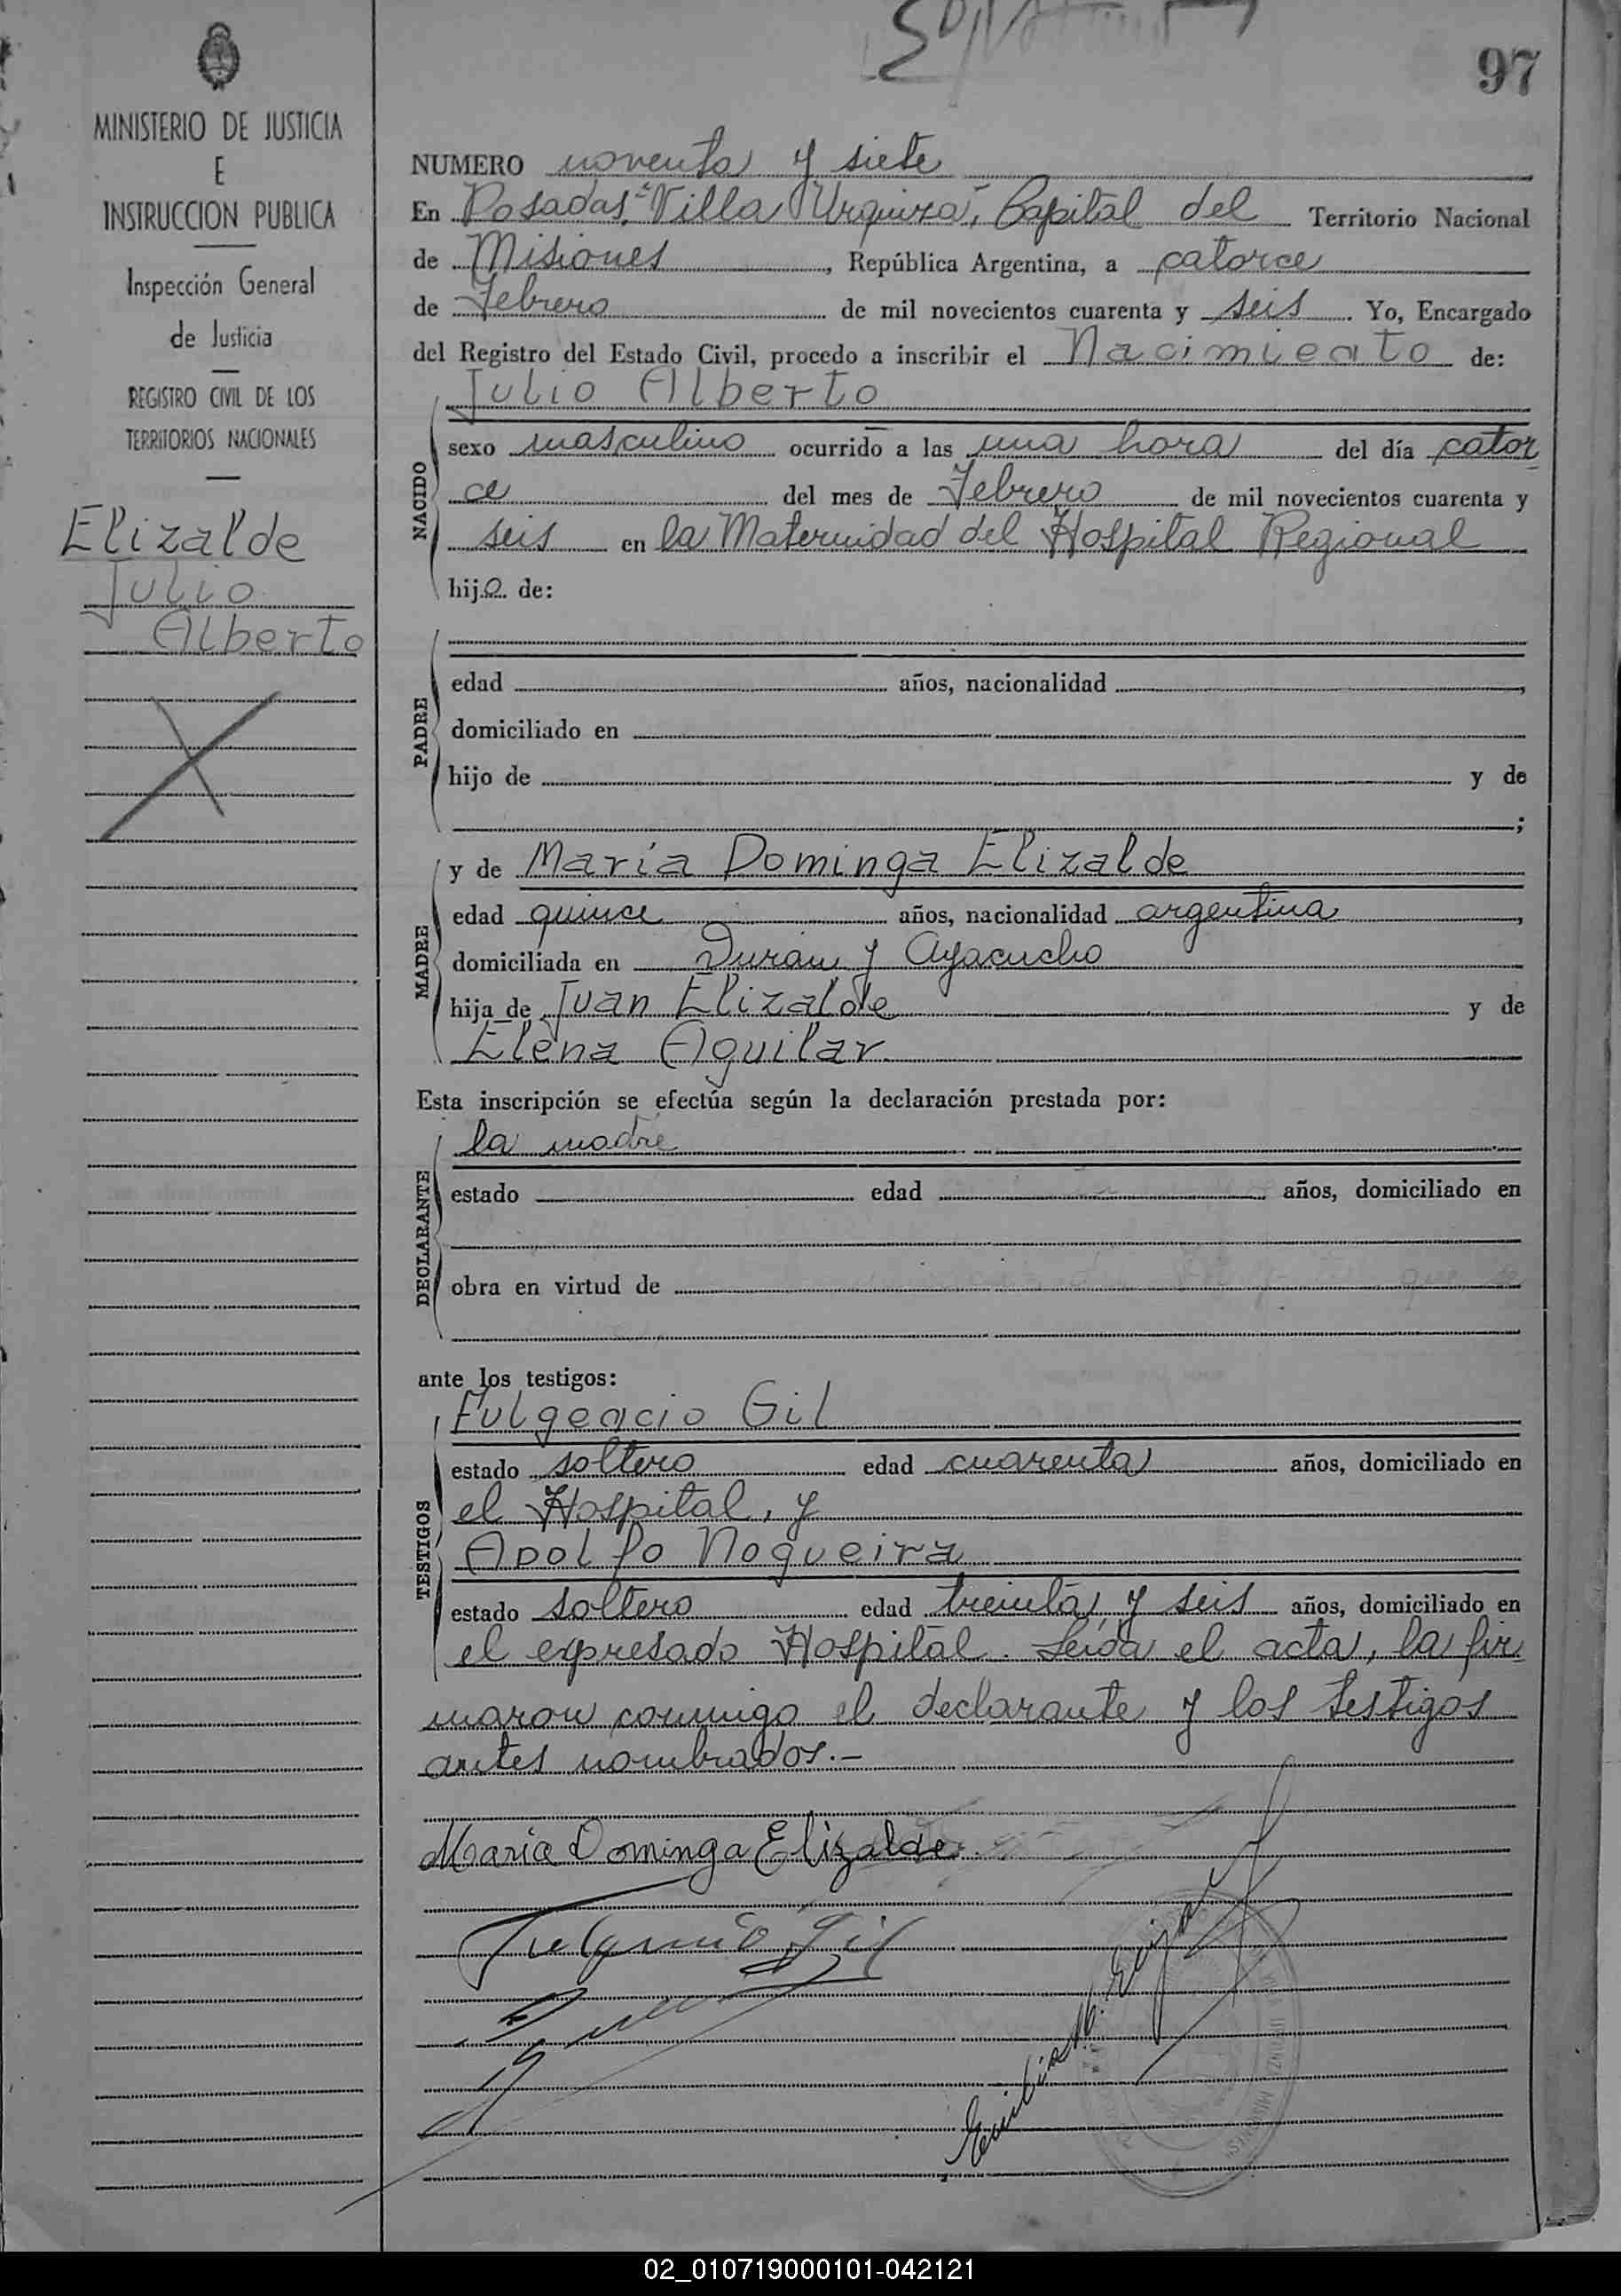 97
MINISTERIO DE JUSTICIA
E
INSTRUCCION PUBLICA
Inspección General
de Justicia
REGISTRO CIVIL DE LOS
TERRITORIOS NACIONALES
Elizalde
Julio
Alberto
NUMERO noventa y siete
En Posadas, "Villa Urquiza", Capital del Territorio Nacional
de Misiones, República Argentina, a catorce
de Febrero de mil novecientos cuarenta y seis. Yo, Encargado
del Registro del Estado Civil, procedo a inscribir el Nacimiento de:
Julio Alberto
NACIDO
sexo masculino ocurrido a las una hora del día cator
ce del mes de Febrero de mil novecientos cuarenta y
seis en la Maternidad del Hospital Regional
hijo de:
PADRE
edad años, nacionalidad ,
domiciliado en
hijo de y de
;
MADRE
y de María Dominga Elizalde
edad quince años, nacionalidad argentina,
domiciliada en Durán y Ayacucho
hija de Juan Elizalde y de
Elena Aguilar
Esta inscripción se efectúa según la declaración prestada por:
DECLARANTE
la madre
estado edad años, domiciliado en
obra en virtud de
ante los testigos:
TESTIGOS
Fulgencio Gil
estado soltero edad cuarenta años, domiciliado en
el Hospital, y
Adolfo Nogueira
estado soltero edad treinta y seis años, domiciliado en
el expresado Hospital. Leída el acta, la fir
maron conmigo el declarante y los testigos
antes nombrados.-
Maria Dominga Elizalde
Fulgencio Gil
02_010719000101-042121